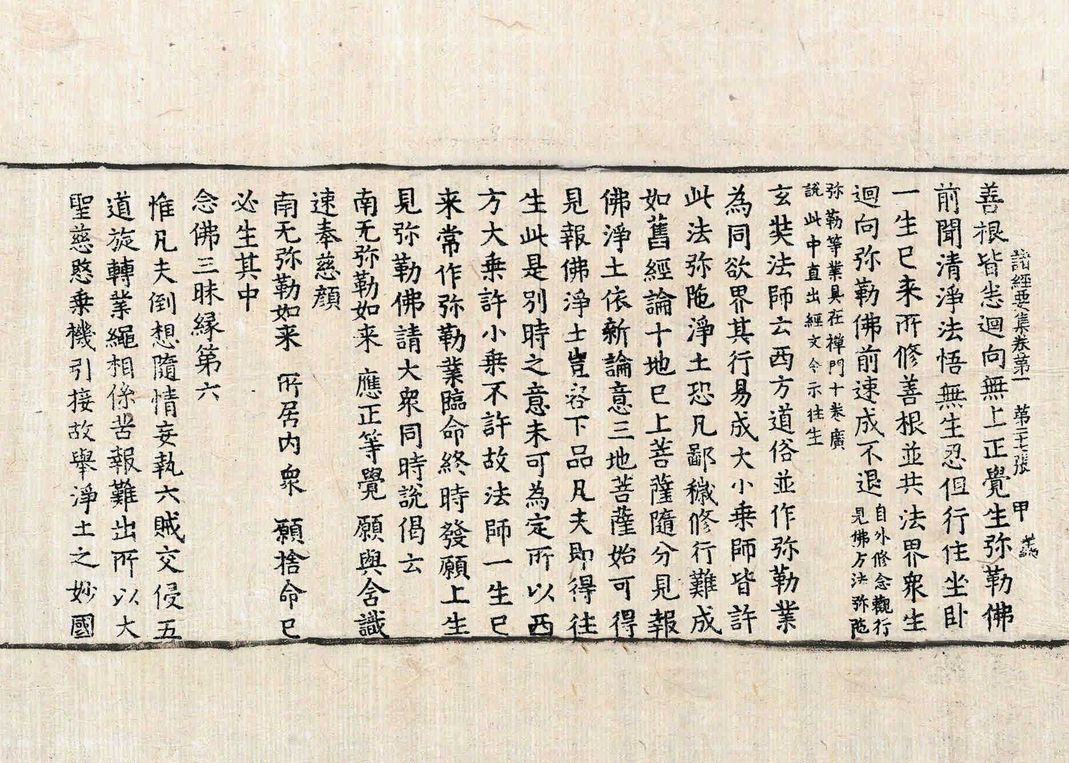 善根皆悉迴向無上正覺生弥勒佛
諸經要集卷第一 第二十七張 甲
前聞清淨法悟無生忍但行住坐卧
一生已来所修善根並共法界衆生
迴向弥勒佛前速成不退 自外修念觀行見佛方法弥陁
弥勒等業具在禪門十卷廣說此中直出經文令示往生
玄奘法師云西方道俗並作弥勒業
為同欲界其行易成大小乗師皆許
此法弥陁淨土恐凡鄙穢修行難成
如舊經論十地已上菩薩隨分見報
佛淨土依新論意三地菩薩始可得
見報佛淨土豈容下品凡夫即得往
生此是別時之意未可為定所以西
方大乗許小乗不許故法師一生已
来常作弥勒業臨命終時發願上生
見弥勒佛請大衆同時說偈云
南无弥勒如来 應正等覺 願與含識
速奉慈顔
南无弥勒如来 所居内衆 願捨命已
必生其中
念佛三昧縁第六
惟凡夫倒想隨情妄執六賊交侵五
道旋轉業繩相係苦報難出所以大
聖慈愍乗機引接故舉淨土之妙國